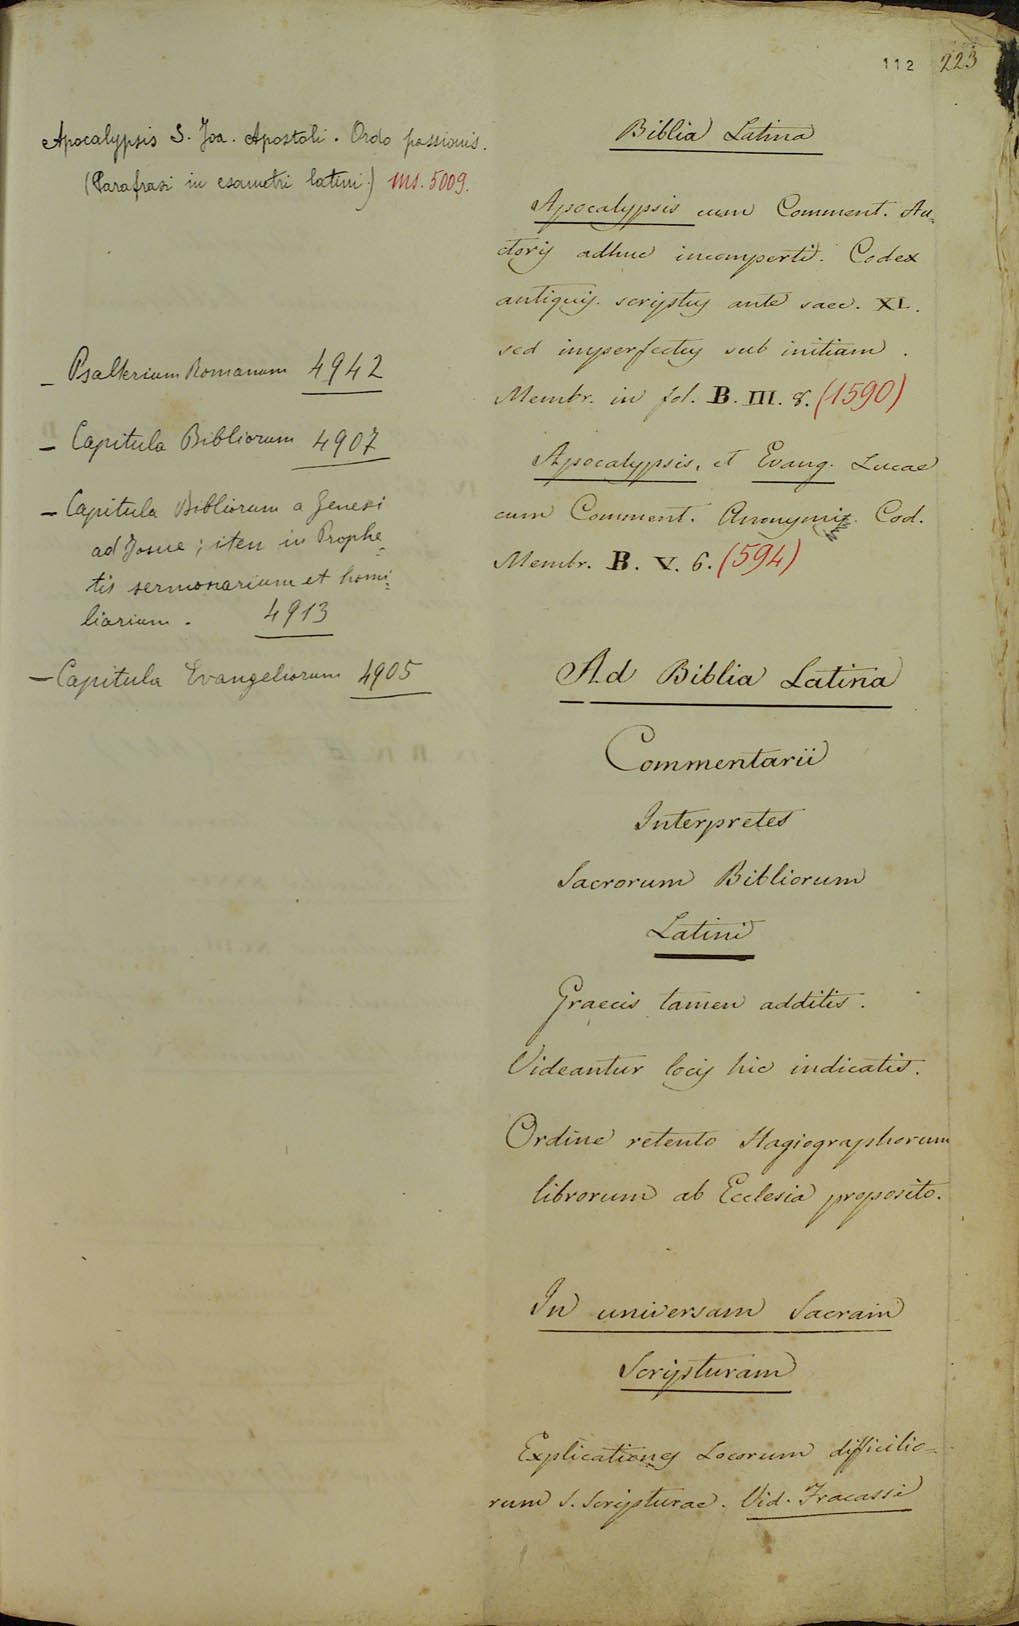 112 223
Apocalypsis S. Joa. Apostoli. Ordo passionis.
(Parafrasi in esametri latini.) Ms. 5009.
– Psalterium Romanum 4942
– Capitula Bibliorum 4907
– Capitula Bibliorum a Genesi
ad Josue; item in Prophe=
tis sermonarium et homi=
liarium. 4913
– Capitula Evangeliorum 4905
Biblia Latina
Apocalypsis cum Comment. Au=
ctoris adhuc incomperti. Codex
antiquis. scriptus ante saec. XI.
sed imperfectus sub initium.
Membr. in fol. B. III. 8. (1590)
Apocalypsis, et Evang. Lucae
cum Comment. Anonymi. Cod.
Membr. B. V. 6. (594)
Ad Biblia Latina
Commentarii
Interpretes
Sacrorum Bibliorum
Latini
Graecis tamen additis.
Videantur locis hic indicatis.
Ordine retento Hagiographorum
librorum ab Ecclesia proposito.
In universam Sacram
Scripturam
Explicationes Locorum difficilio=
rum S. Scripturae. Vid. Fracassi